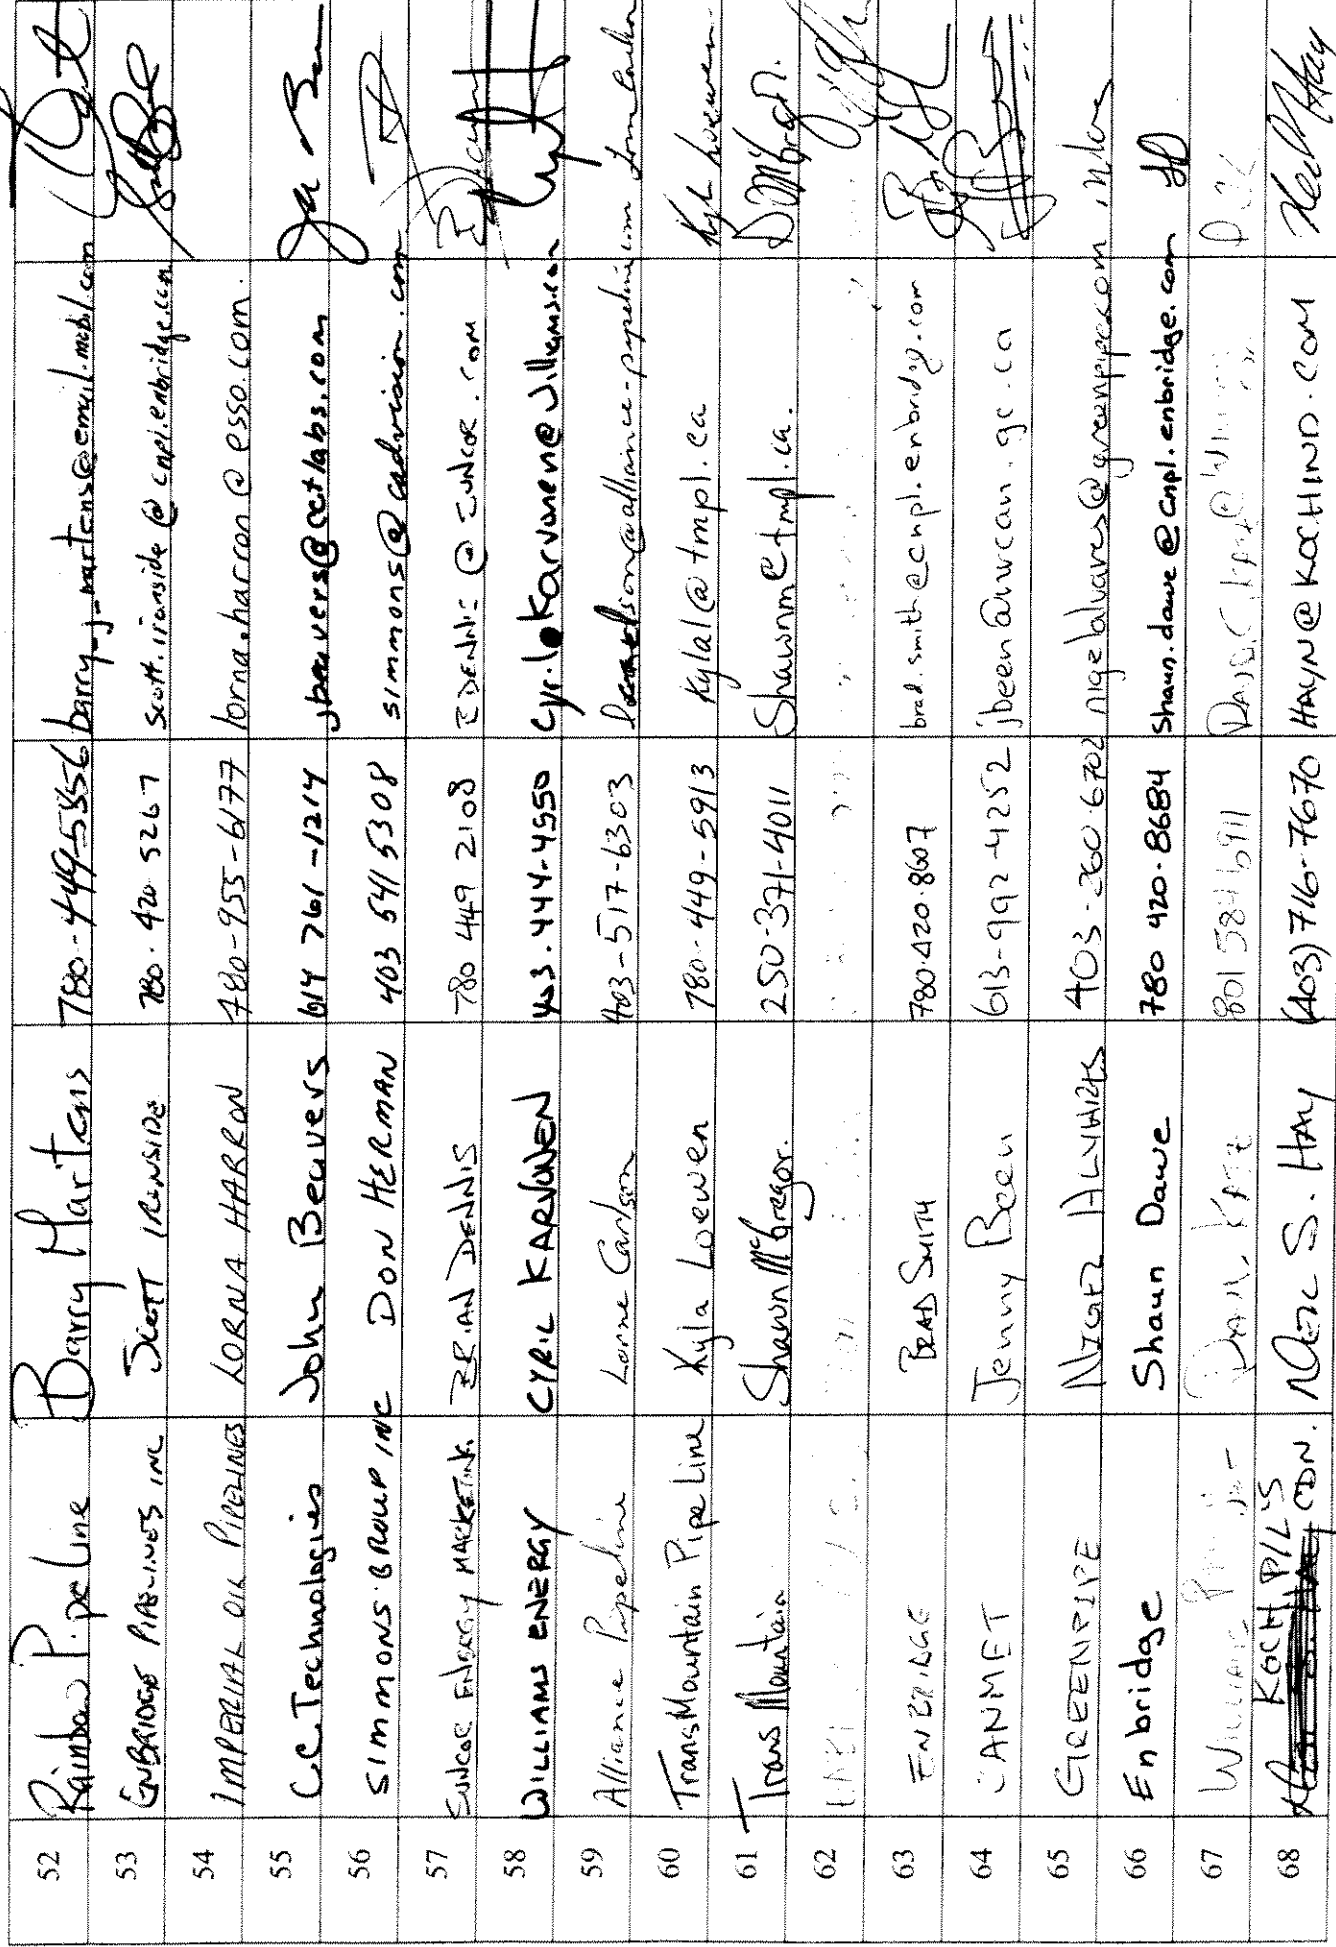 52 Rainbow Pipe Line Barry Martens 780-449-5856 barry_j_martens@email.mobil.com
53 ENBRIDGE PIPELINES INC SCOTT IRONSIDE 780-420 5267 scott.ironside@cnpl.enbridge.com
54 IMPERIAL OIL PIPELINES LORNA HARRON 780-955-6177 lorna.harron@esso.com.
55 C.C. Technologies John Beavers 614 761-1214 jbeavers@cctlabs.com
56 SIMMONS GROUP INC DON HERMAN 403 541 5308 simmons@cadvision.com
57 SUNCOR ENERGY MARKETING. BRIAN DENNIS 780 449 2108 BDENNIS@SUNCOR.COM
58 WILLIAMS ENERGY CYRIL KARVONEN 403.444-4550 Cyril.Karvonen@Williams.com
59 Alliance Pipeline Lorne Carlson 403-517-6303
60 TransMountain Pipe Line Kyla Loewen 780-449-5913 Kylal@tmpl.ca Kyla Loewen
61 Trans Mountain Shawn McGregor. 250-371-4011 Shawnm@tmpl.ca.
62
63 ENBRIDGE BRAD SMITH 780-420-8607 brad.smith@cnpl.enbridge.com
64 CANMET Jenny Been 613-992-4252 jbeen@nrcan.gc.ca
65 GREENPIPE 403-260-6702 nigelalvares@greenpipe.com
66 Enbridge Shaun Dawe 780 420-8684 Shaun.dawe@cnpl.enbridge.com SD
67 801 584 6911
68 KOCH P/L'S CDN. NEIL S. HAY (403) 716-7670 HAYN@KOCHIND.COM Neil Hay